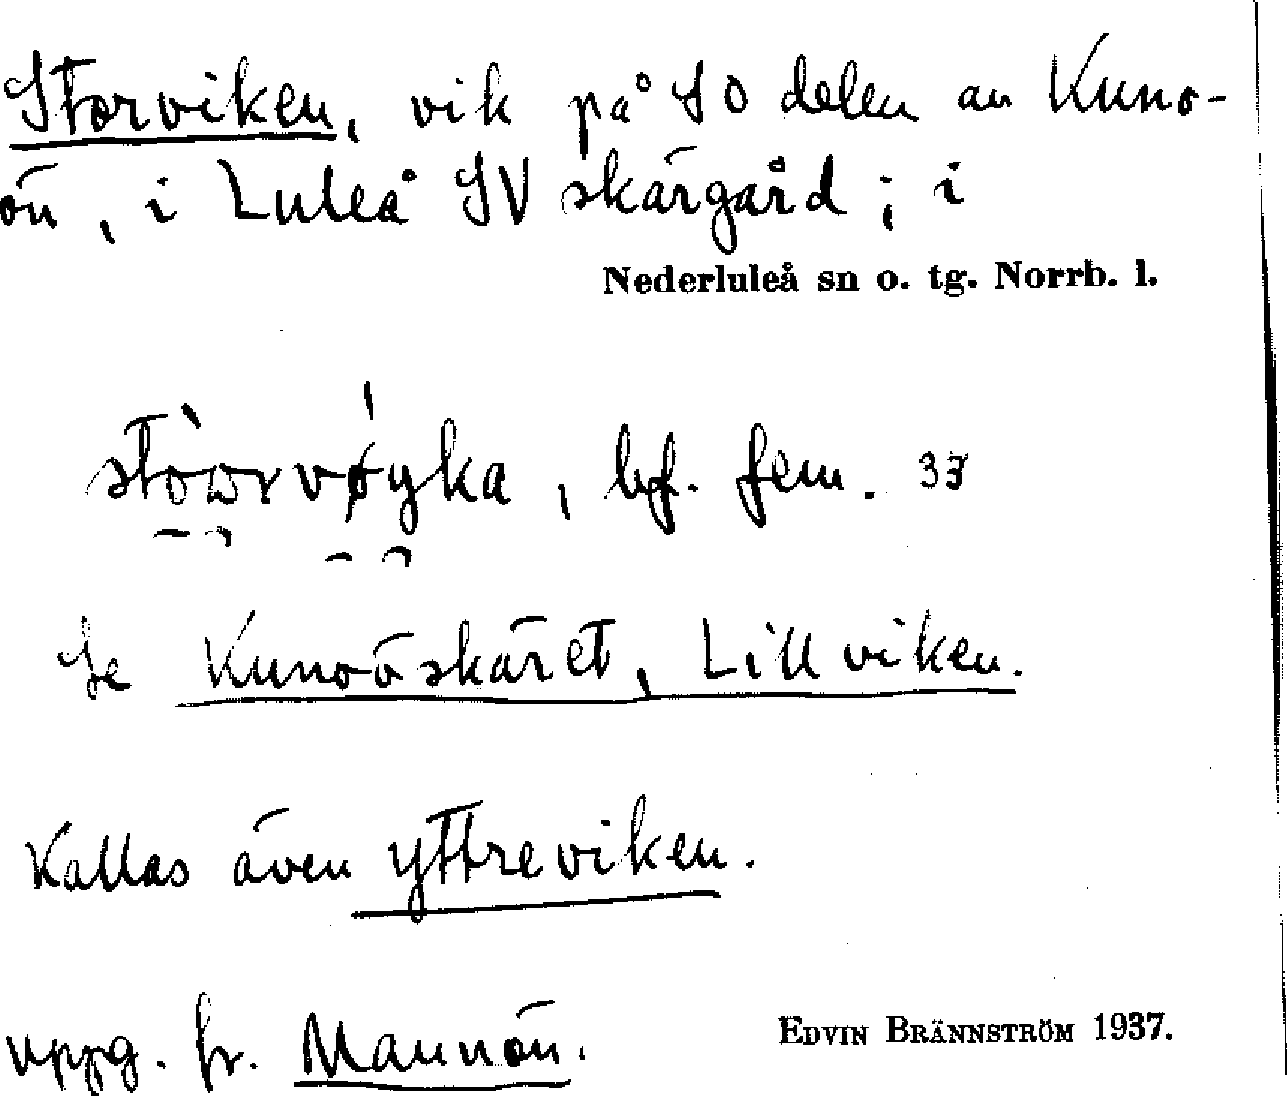 Storviken, vik på SO delen av Kuno-
ön, i Luleå SV skärgård; i
Nederluleå sn o. tg. Norrb. l.
bf. fem. 33
Se Kunoöskäret, Lillviken.
Kallas även yttreviken.
uppg. fr. Mannön.
EDVIN BRÄNNSTRÖM 1937.